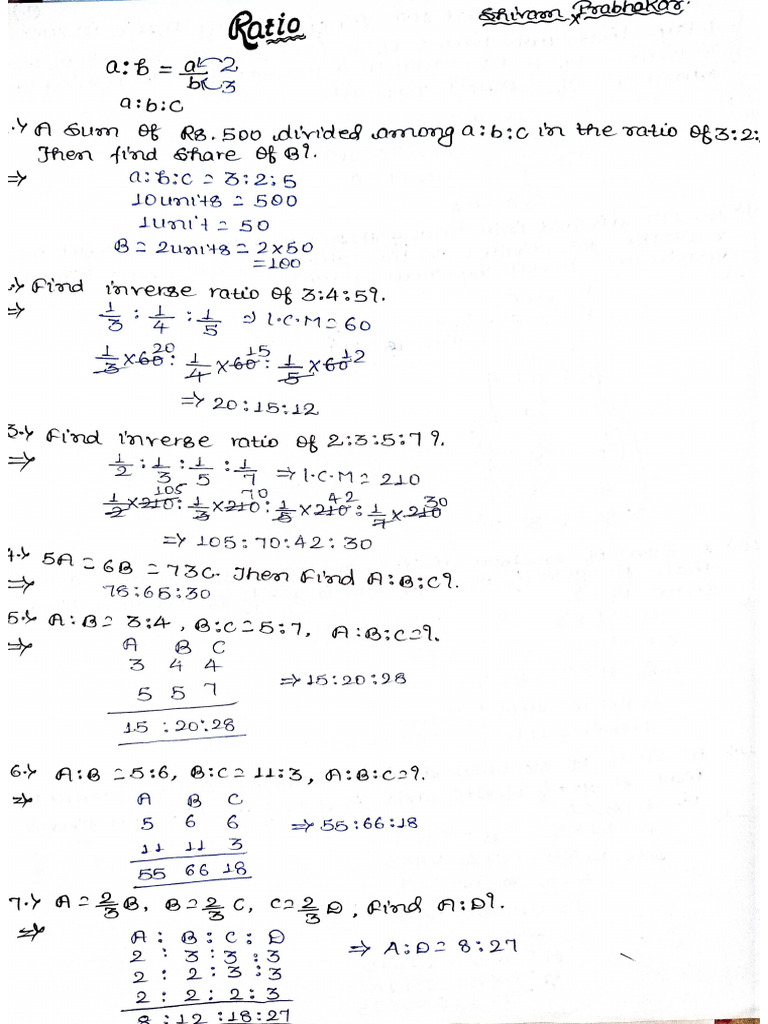 Ratio
Shivam Prabhakar
a:b = a/b 2 3
a:b:c
A sum of Rs. 500 divided among a:b:c in the ratio of 3:2:
Then find share of B?.
⇒ a:b:c = 3:2:5
10units = 500
1unit = 50
B = 2units = 2×50
=100
Find inverse ratio of 3:4:5?.
⇒ 1/3 : 1/4 : 1/5 ⇒ L.C.M = 60
1/3 × 60 20 : 1/4 × 60 15 : 1/5 × 60 12
⇒ 20:15:12
3.) Find inverse ratio of 2:3:5:7?.
⇒ 1/2 : 1/3 : 1/5 : 1/7 ⇒ L.C.M = 210
1/2 × 210 105 : 1/3 × 210 70 : 1/5 × 210 42 : 1/7 × 210 30
⇒ 105:70:42:30
4.) 5A = 6B = 73C. Then find A:B:C?.
⇒ 78:65:30
5.) A:B = 3:4, B:C = 5:7, A:B:C=?.
⇒ A B C
3 4 4
5 5 7 ⇒ 15:20:28
15 :20:28
6.) A:B = 5:6, B:C = 11:3, A:B:C=?.
⇒ A B C
5 6 6 ⇒ 55:66:18
11 11 3
55 66 18
7.) A = 2/3 B, B = 2/3 C, C = 2/3 D, Find A:D?.
⇒ A : B : C : D
2 : 3 : 3 : 3 ⇒ A:D = 8:27
2 : 2 : 3 : 3
2 : 2 : 2 : 3
8 :12 :18:27